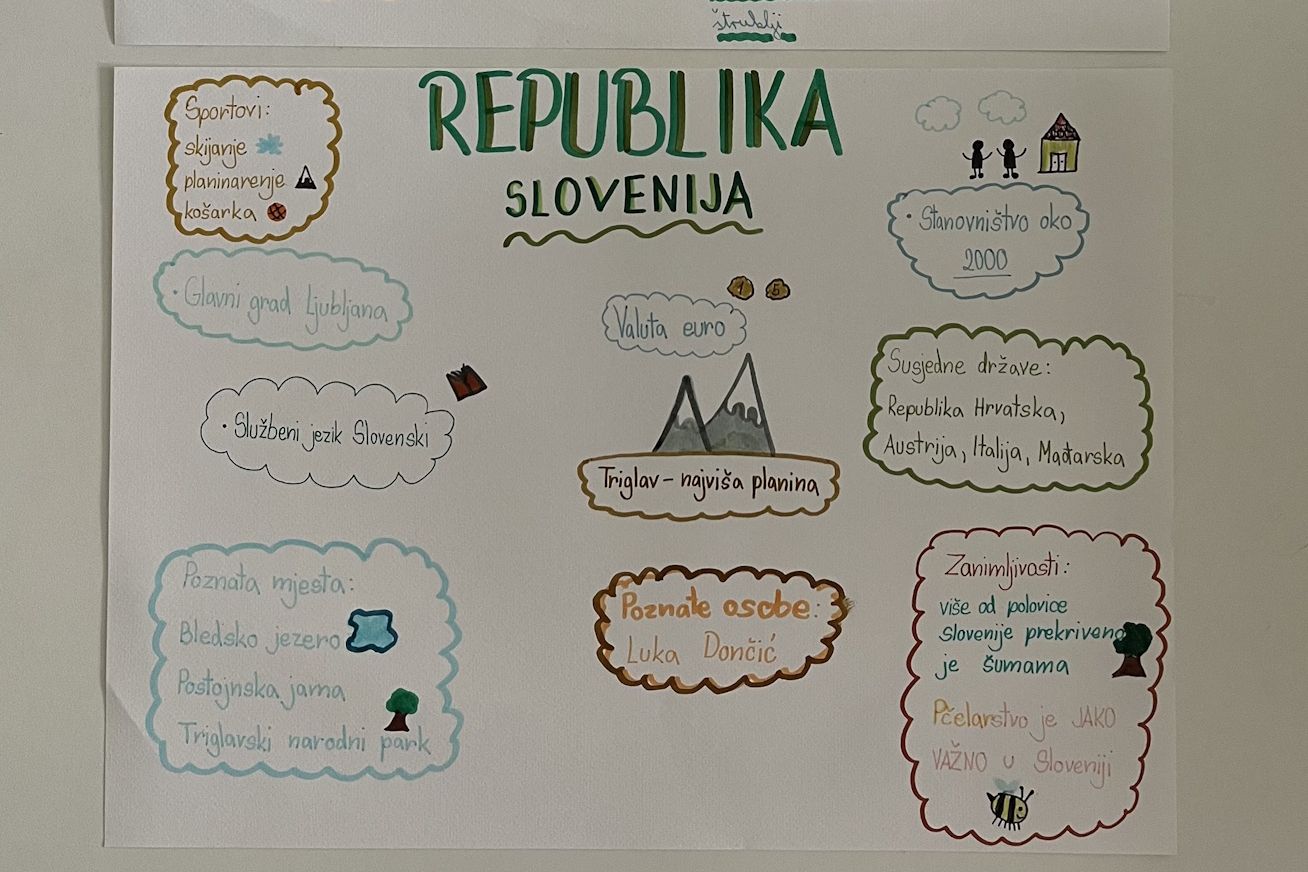 štrublji
REPUBLIKA
SLOVENIJA
Sportovi:
skijanje
planinarenje
košarka
• Glavni grad Ljubljana
• Službeni jezik Slovenski
Poznata mjesta:
Bledsko jezero
Postojnska jama
Triglavski narodni park
1 5
Valuta euro
Triglav - najviša planina
Poznate osobe:
Luka Dončić
• Stanovništvo oko
2000
Susjedne države:
Republika Hrvatska,
Austrija, Italija, Mađarska
Zanimljivosti:
više od polovice
Slovenije prekriveno
je šumama
Pčelarstvo je JAKO
VAŽNO u Sloveniji